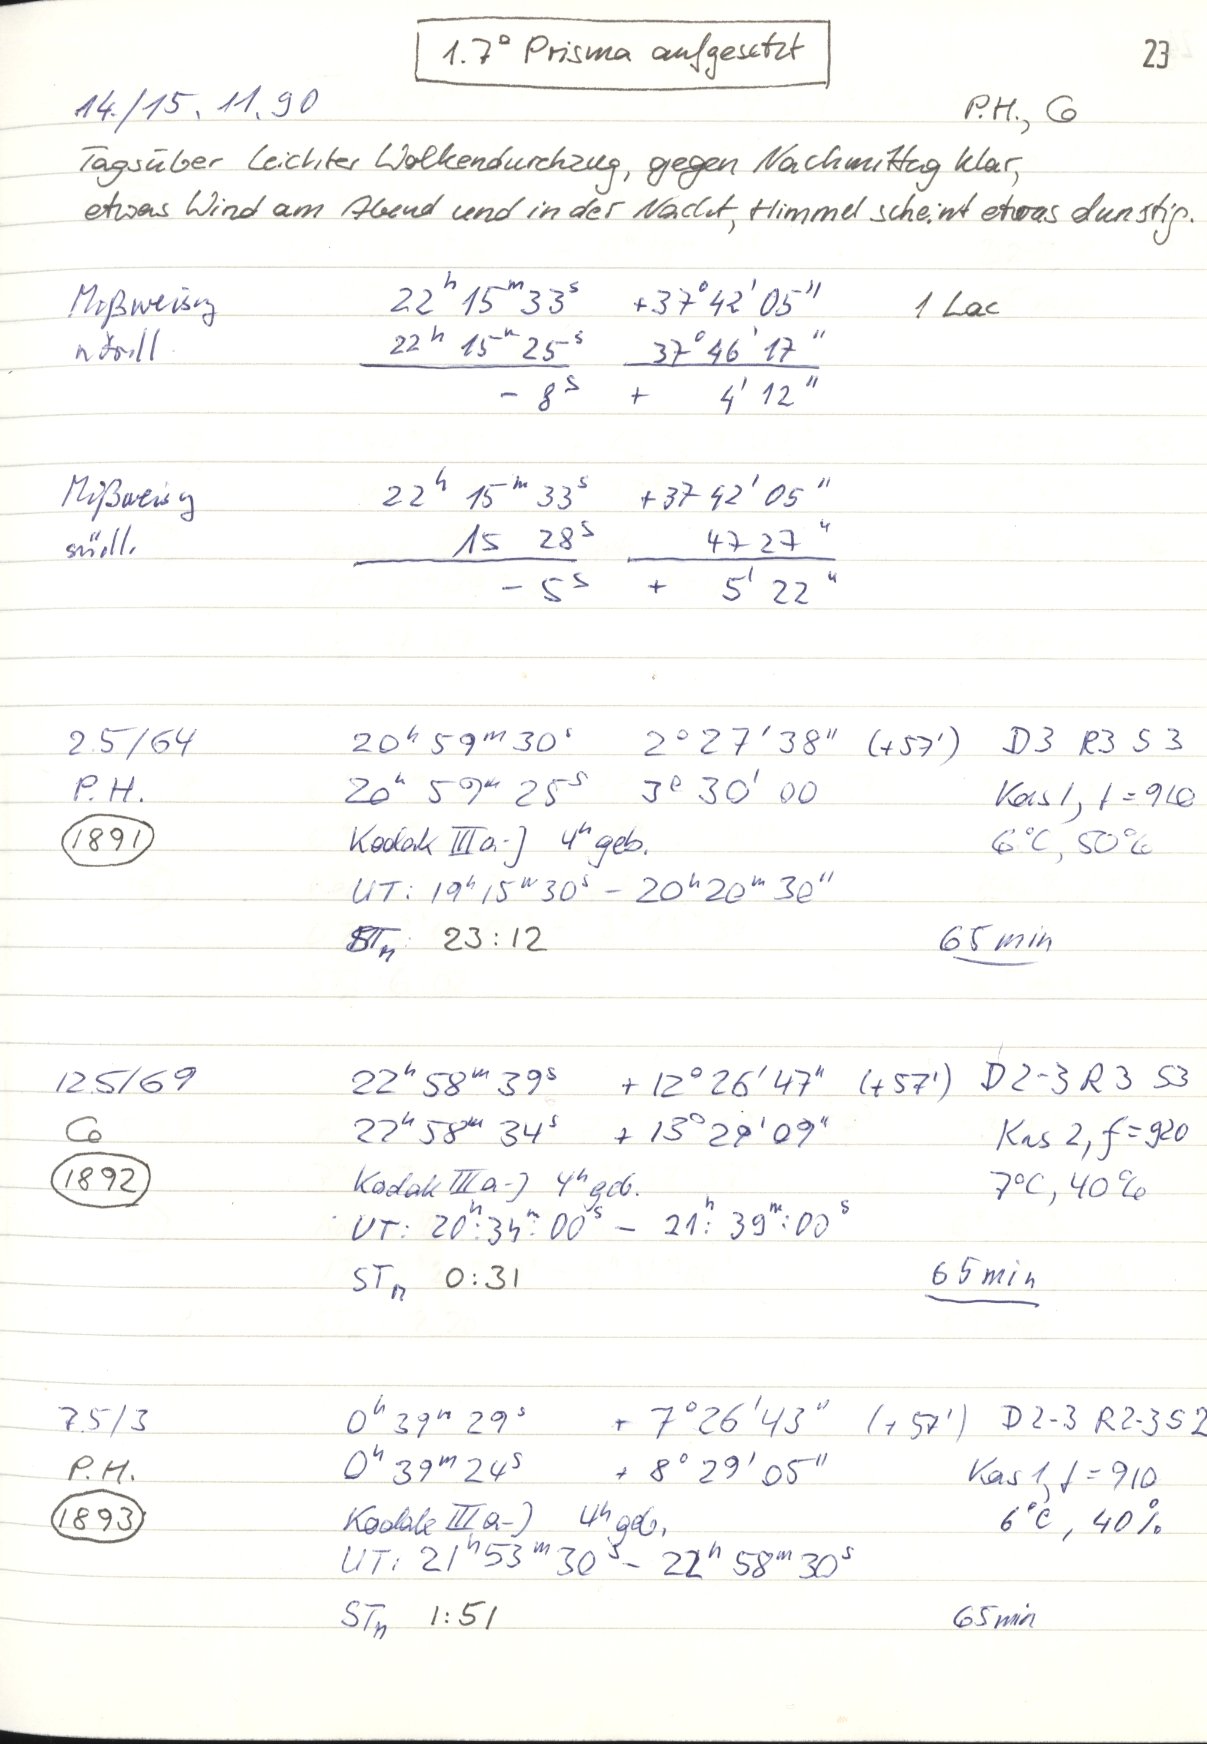 1.7° Prisma aufgesetzt
23
14./15. 11. 90 P.H., Co
Tagsüber leichter Wolkendurchzug, gegen Nachmittag klar,
etwas Wind am Abend und in der Nacht, Himmel scheint etwas dunstig.
Mißweisung 22ʰ 15ᵐ 33ˢ +37° 42' 05" 1 Lac
nördl. 22ʰ 15ᵐ 25ˢ 37° 46' 17"
- 8ˢ + 4' 12"
Mißweisung 22ʰ 15ᵐ 33ˢ +37 42' 05"
südl. 15 28ˢ 47 27"
- 5ˢ + 5' 22"
25/64 20ʰ 59ᵐ 30ˢ 2° 27' 38" (+57') D3 R3 S3
P.H. 20ʰ 59ᵐ 25ˢ 3° 30' 00 Kas 1, f = 910
1891 Kodak IIIa-J 4ʰ geb. 6°C, 50%
UT: 19ʰ 15ᵐ 30ˢ - 20ʰ 20ᵐ 30"
STₙ: 23:12 65 min
125/69 22ʰ 58ᵐ 39ˢ + 12° 26' 47" (+57') D2-3 R3 S3
Co 22ʰ 58ᵐ 34ˢ + 13° 29' 09" Kas 2, f = 920
1892 Kodak IIIa-J 4ʰ geb. 7°C, 40%
UT: 20ʰ: 34ᵐ: 00ˢ - 21ʰ: 39ᵐ: 00ˢ
STₙ 0:31 65 min
75/3 0ʰ 39ᵐ 29ˢ + 7° 26' 43" (+57') D2-3 R2-3 S2
P.H. 0ʰ 39ᵐ 24ˢ + 8° 29' 05" Kas 1, f = 910
1893 Kodak IIIa-J 4ʰ geb. 6°C, 40%
UT: 21ʰ 53ᵐ 30ˢ - 22ʰ 58ᵐ 30ˢ
STₙ 1:51 65 min